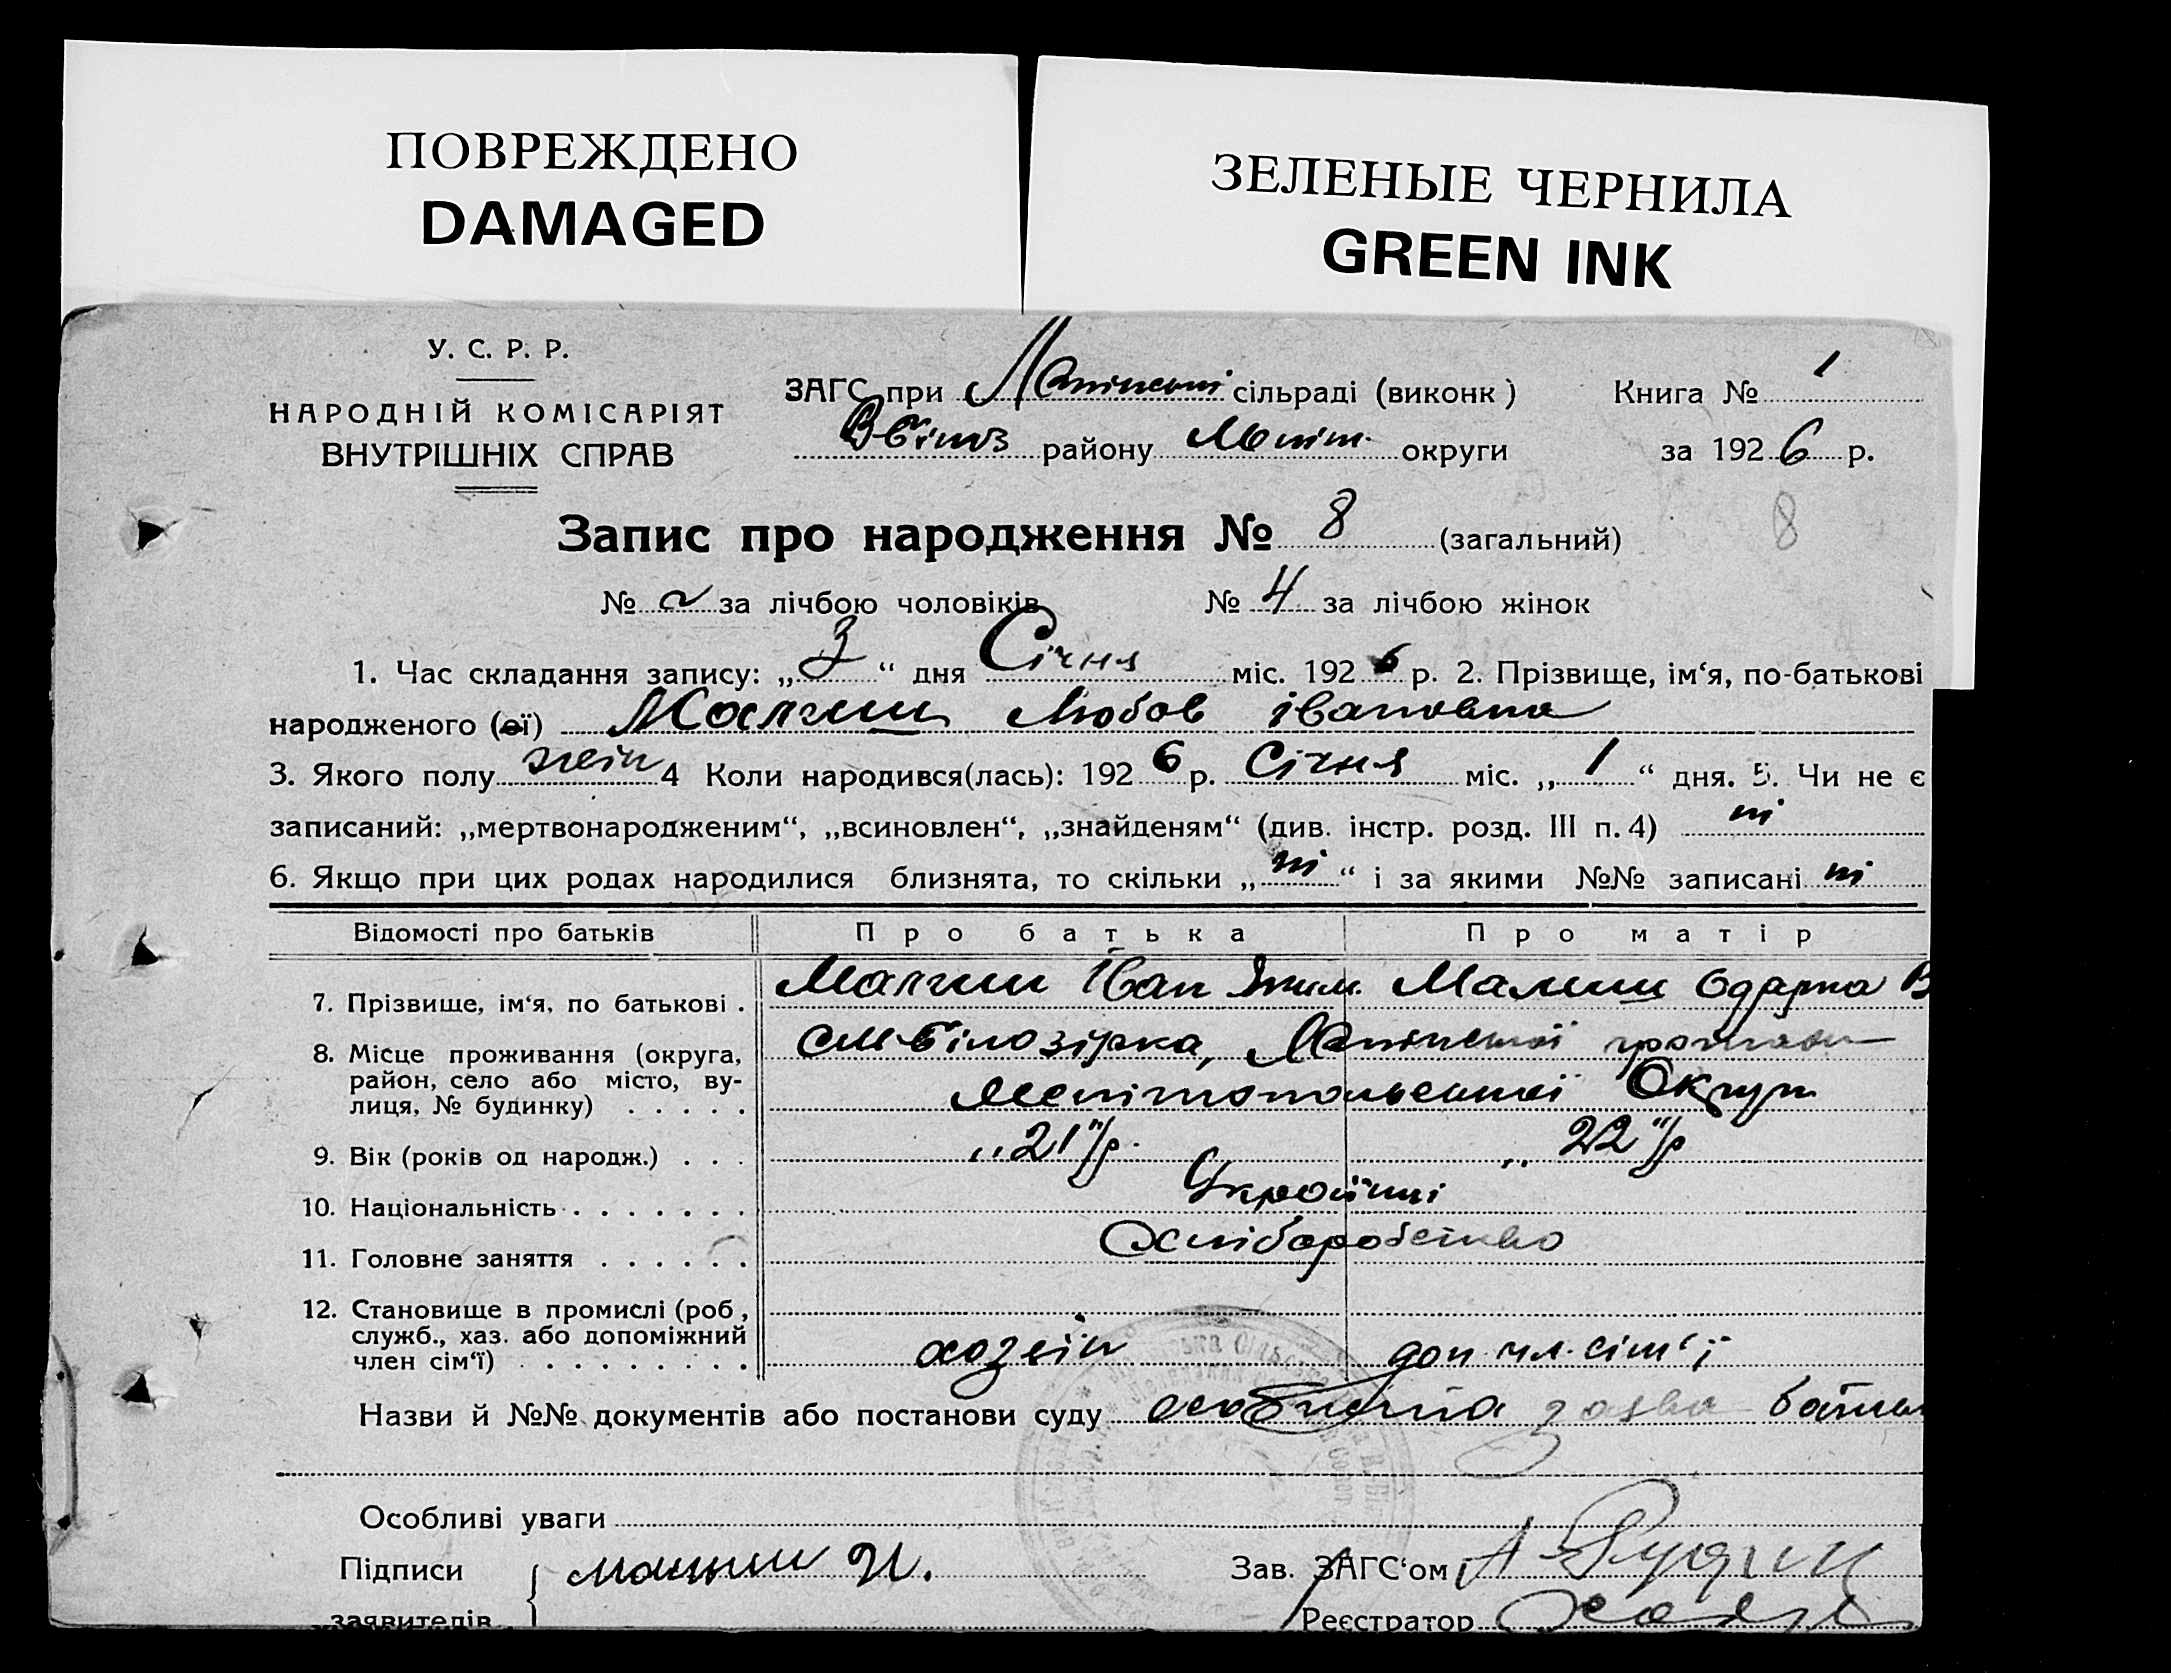 ПОВРЕЖДЕНО
DAMAGED
ЗЕЛЕНЫЕ ЧЕРНИЛА
GREEN INK
У. С. Р. Р.
НАРОДНІЙ КОМІСАРІЯТ
ВНУТРІШНІХ СПРАВ
ЗАГС при сільраді (виконк) Книга № 1
району округи за 1926 р.
Запис про народження № 8 (загальний)
8
№ за лічбою чоловіків № 4 за лічбою жінок
1. Час складання запису: „3“ дня Січня міс. 1926 р. 2. Прізвище, ім‘я, по-батькові
народженого (ої) Любов івановна
3. Якого полу жін 4 Коли народився(лась): 1926 р. Січня міс. „1“ дня. 5. Чи не є
записаний: „мертвонародженим“, „всиновлен“, „знайденям“ (див. інстр. розд. III п. 4) ні
6. Якщо при цих родах народилися близнята, то скільки „ні“ і за якими №№ записані ні
Відомості про батьків Про батька Про матір
7. Прізвище, ім‘я, по батькові . Іван Яким. Одарка В
8. Місце проживання (округа,
район, село або місто, ву-
лиця, № будинку) . . . . .
Білозірка,
Мелітопольської Округи
9. Вік (років од народж.) . . . „21“/р. „22“/р
10. Національність . . . . . . . Українці
11. Головне заняття . . . . . . Хліборобство
12. Становище в промислі (роб,
служб., хаз. або допоміжний
член сім‘ї) . . . . . . . . .
хозяїн доп. чл. сім‘ї
Назви й №№ документів або постанови суду особиста заява батька
Особливі уваги
Підписи И. Зав. ЗАГС‘ом
заявителів Реєстратор